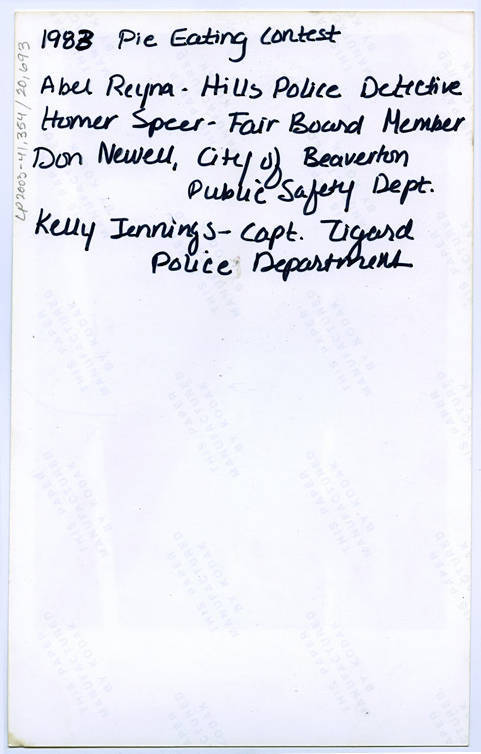 1983 Pie Eating Contest
Abel Reyna - Hills Police Detective
Homer Speer - Fair Board Member
Don Newell, City of Beaverton
Public Safety Dept.
Kelly Jennings - Capt. Tigard
Police Department
LP2003-41,354/20,693
THIS PAPER
MANUFACTURED
BY KODAK